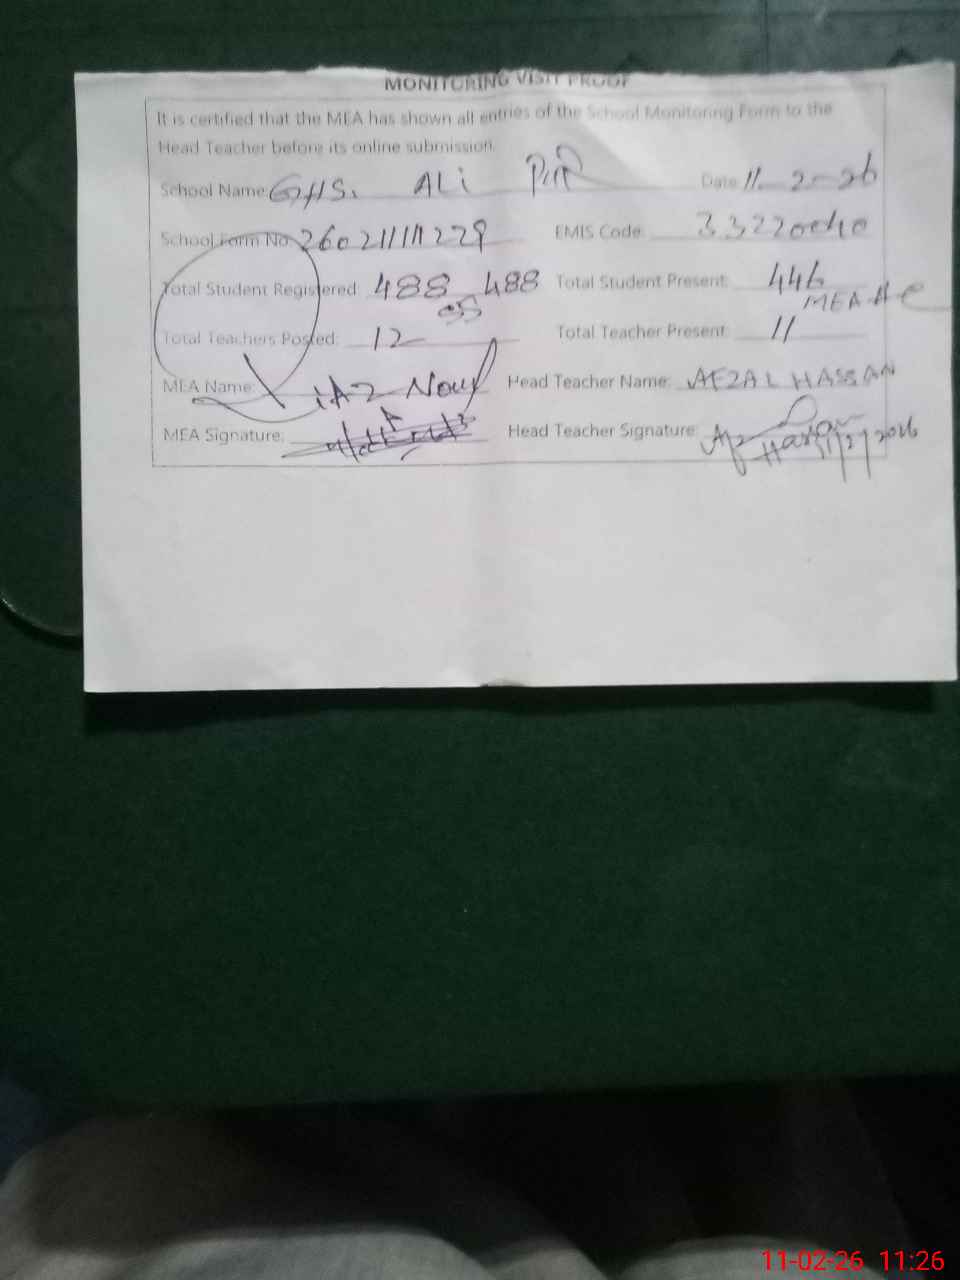 MONITORING VISIT PROOF
It is certified that the MEA has shown all entries of the School Monitoring Form to the
Head Teacher before its online submission.
School Name: GHS. ALi PUR Date: 11-2-26
School Form No: 26021111229 EMIS Code:
Total Student Registered: 488 488 Total Student Present: 446
Total Teachers Posted: 12 Total Teacher Present: 11
MEA Name: Head Teacher Name: AFZAL HASSAN
MEA Signature: Head Teacher Signature: 11/2/2026
11-02-26 11:26